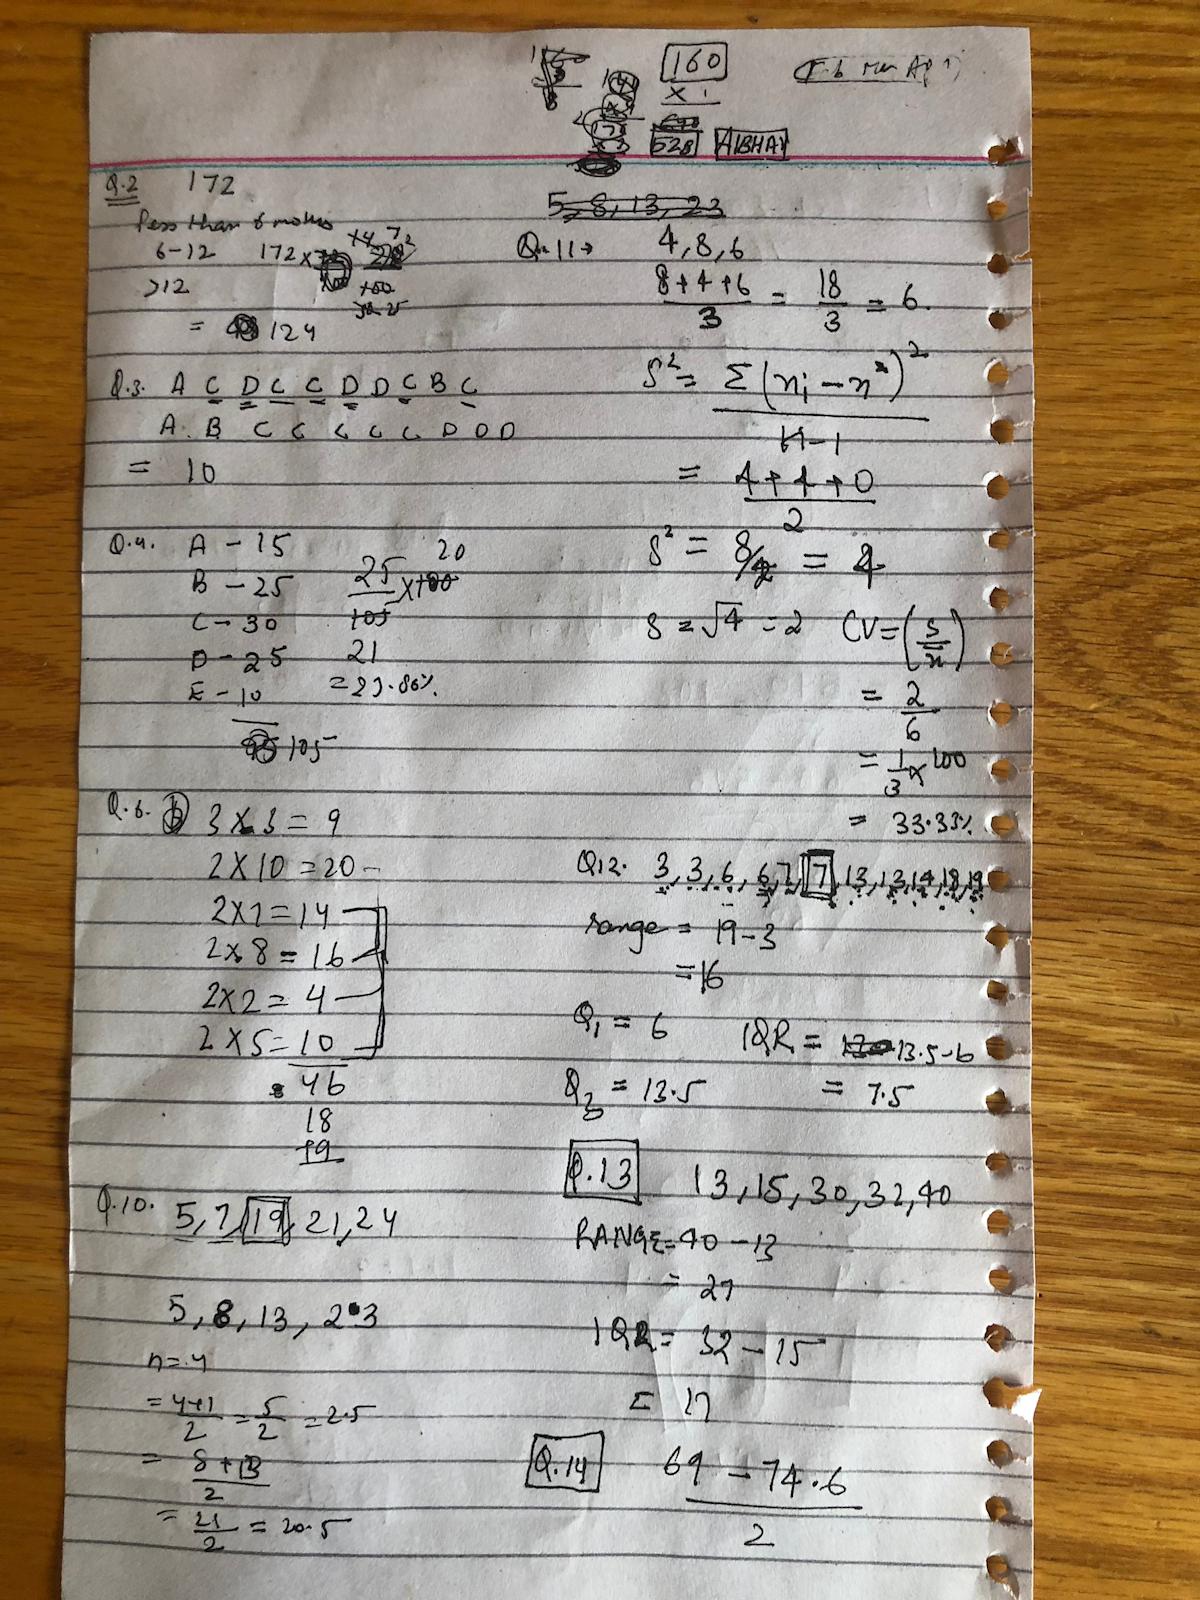 160
x 1
528 ABHAY
Q.2 172
Less than 6 moles
6-12 172 x
>12
= 124
Q.3. A C D C C D D C B C
A. B C C C C C D D D
= 10
Q.4. A - 15
B - 25
C - 30
D - 25
E - 10
105
25/105 x 100 20
21
= 23.80%
Q.6. b 3 x 3 = 9
2 x 10 = 20
2 x 7 = 14
2 x 8 = 16
2 x 2 = 4
2 x 5 = 10
46
18
19
Q.10. 5, 7, 19, 21, 24
5, 8, 13, 23
n = 4
= 4+1/2 = 5/2 = 2.5
= 8+13/2
= 21/2 = 20.5
5, 8, 13, 23
Q.11→ 4, 8, 6
8+4+6/3 = 18/3 = 6.
S² = Σ(xi - x)²/n-1
= 4+4+0/2
S² = 8/2 = 4
S = √4 = 2 CV = (S/x)
= 2/6
= 1/3 x 100
= 33.33%
Q12. 3, 3, 6, 6, 7, 7, 13, 13, 14, 18, 19
range = 19-3
= 16
Q1 = 6 IQR = 13.5-6
Q3 = 13.5 = 7.5
Q.13 13, 15, 30, 32, 40
RANGE = 40 - 13
= 27
IQR = 32 - 15
= 17
Q.14 69 - 74.6/2